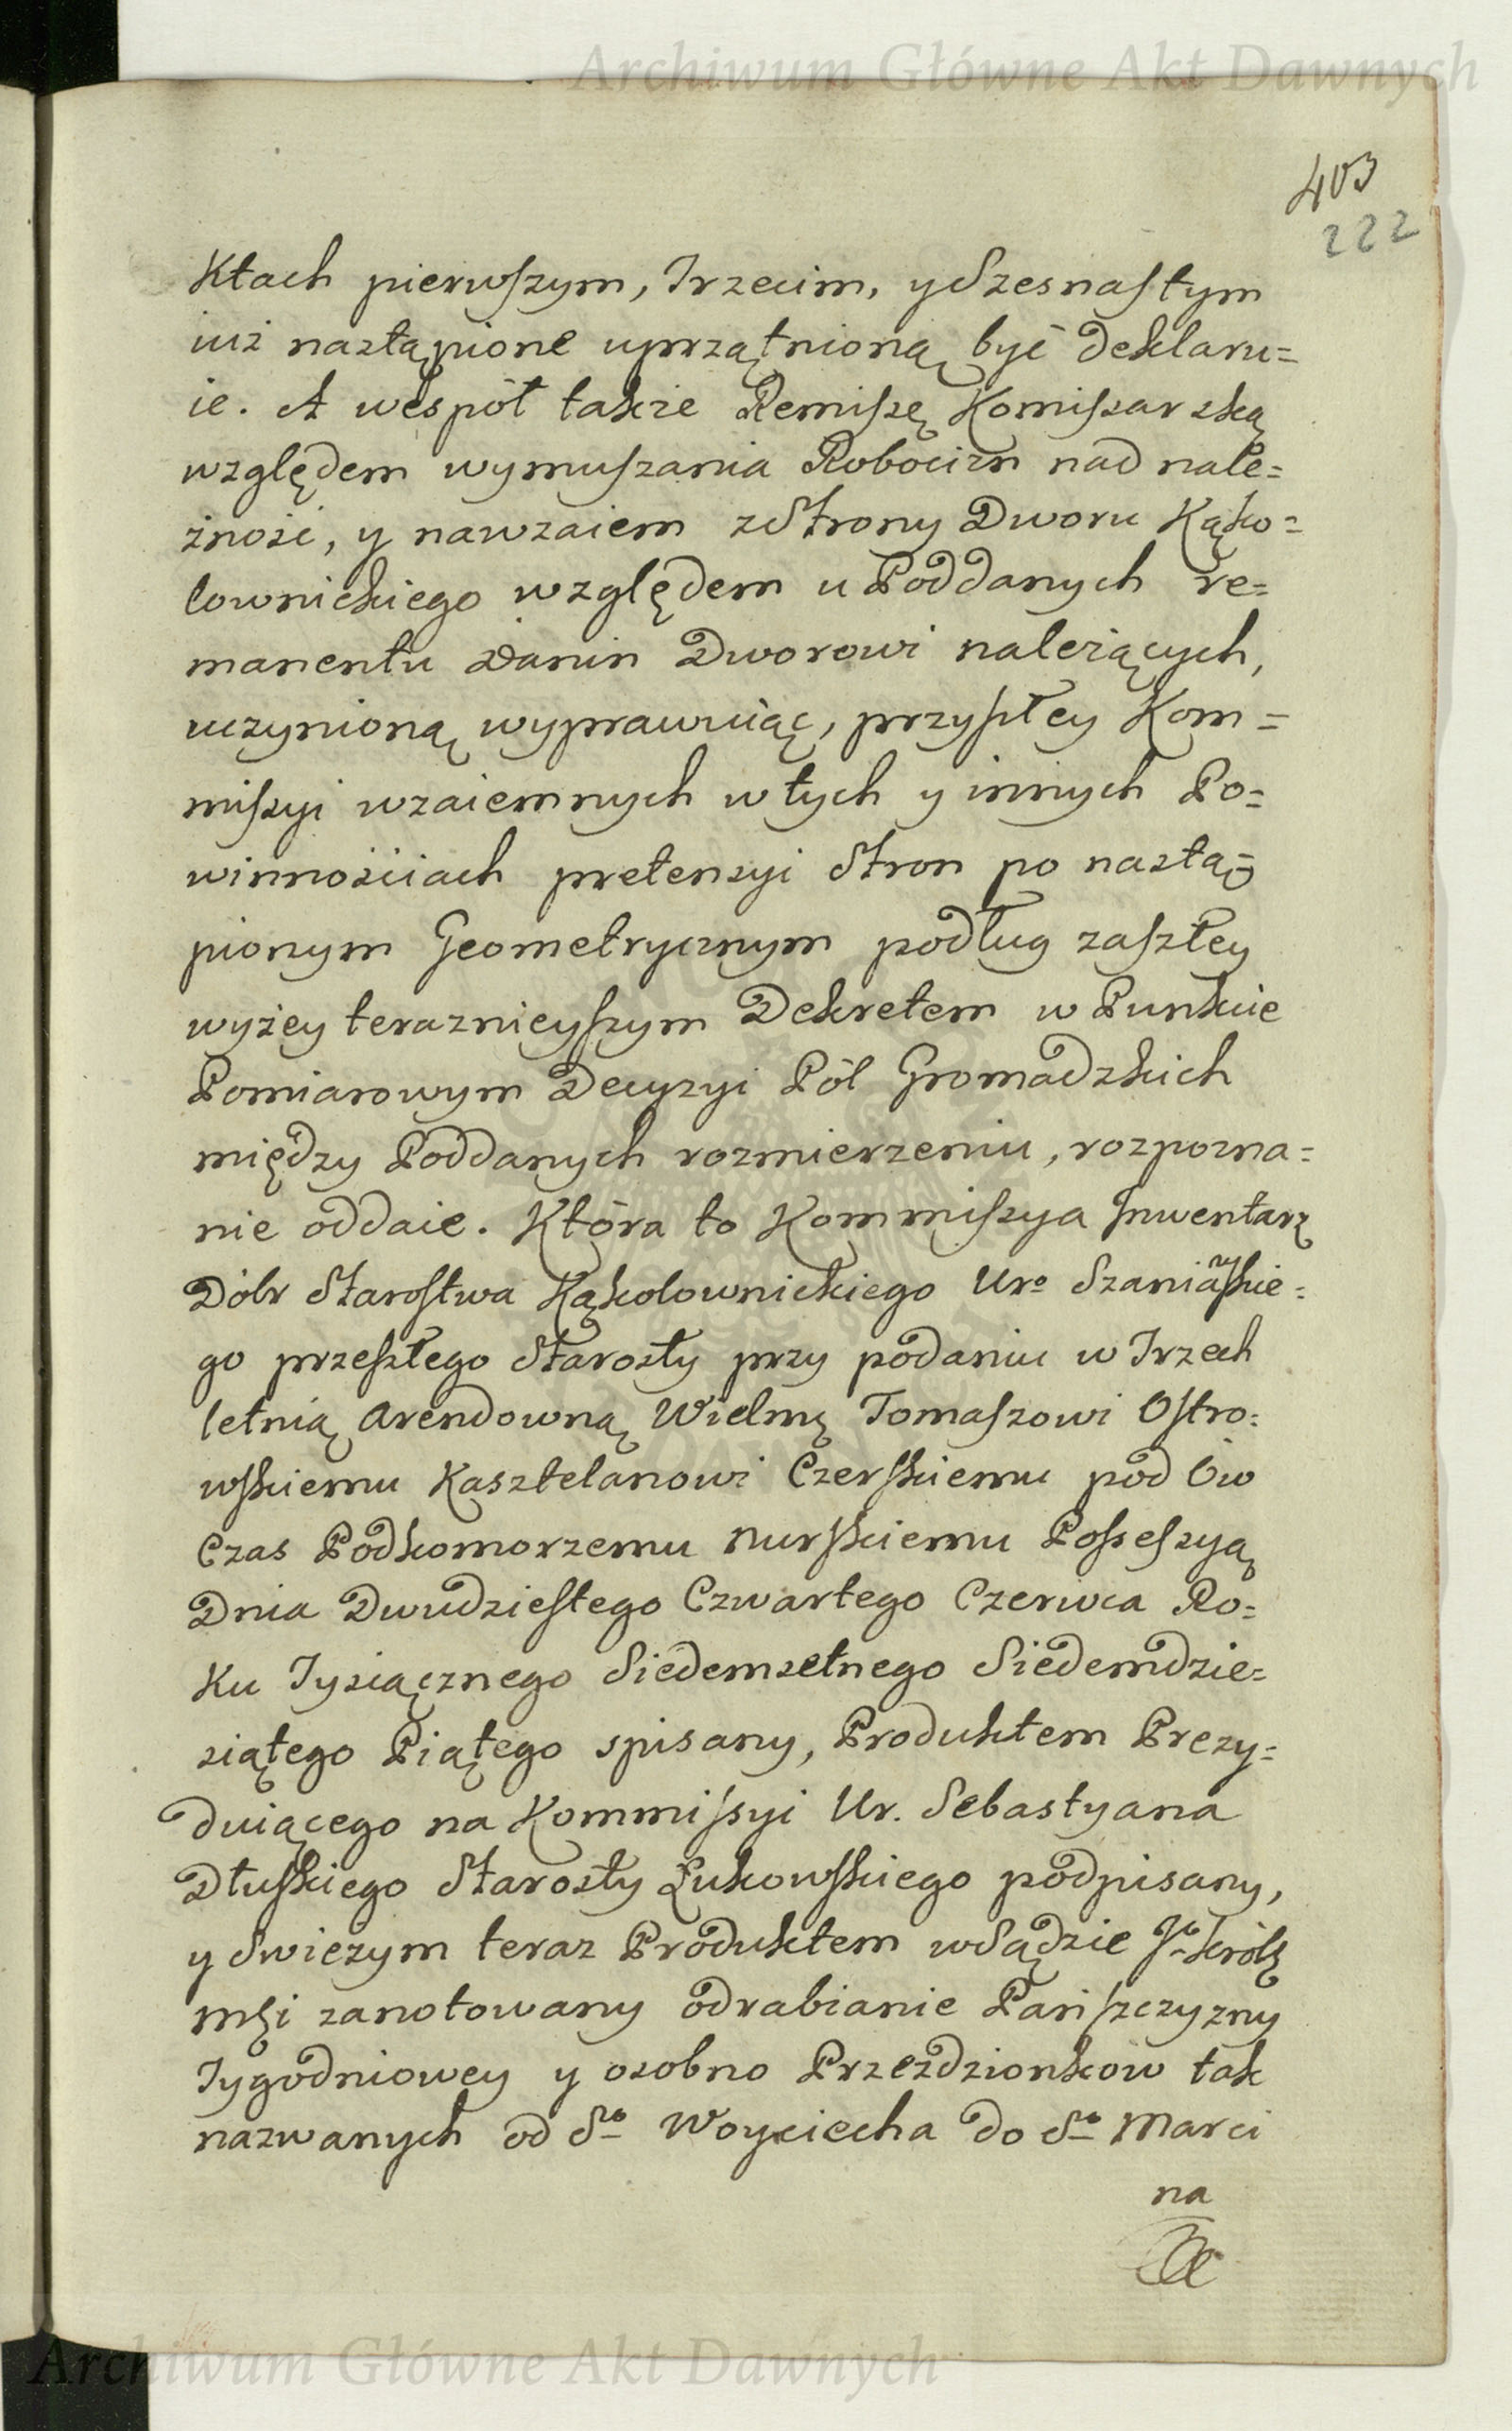 Archiwum Główne Akt Dawnych
403
222
Ktach pierwszym, Trzecim, y Szesnastym
iuż nastąpione uprzątnioną być deklaru=
ie. A wespół także Remissę Komissarską
względem wymuszania Robocizn nad nale=
żność, y nawzaiem z Strony Dworu Kąko=
lownickiego względem u Poddanych re=
manentu Danin Dworowi należących,
uczynioną wyprawuiąc, przyszłey Kom=
missyi wzaiemnych w tych y innych Po=
winnościach pretensyi Stron po nastą=
pionym Geometrycznym podług zaszłey
wyżey teraznieyszym Dekretem w Punkcie
Pomiarowym Decyzyi Pól Gromadzkich
między Poddanych rozmierzeniu, rozpozna=
nie oddaie. Która to Kommissya Inwentarz
Dóbr Starostwa Kąkolownickiego Uro Szaniawskie=
go przeszłego Starosty przy podaniu w Trzech
letnią Arendowną Wielmę Tomaszowi Ostro=
wskiemu Kasztelanowi Czerskiemu pod ów
Czas Podkomorzemu Nurskiemu Possessyą
Dnia Dwudziestego Czwartego Czerwca Ro=
ku Tysiącznego Siedemsetnego Siedemdzie=
siątego Piątego spisany, Produktem Prezy=
duiącego na Kommissyi Ur. Sebastyana
Dłuskiego Starosty Łukowskiego podpisany,
y Swieżym teraz Produktem w Sądzie Jo Królę
mści zanotowany odrabianie Pańszczyzny
Tygodniowey y osobno Przeździonkow tak
nazwanych od So Woyciecha do So Marci
na
Archiwum Główne Akt Dawnych